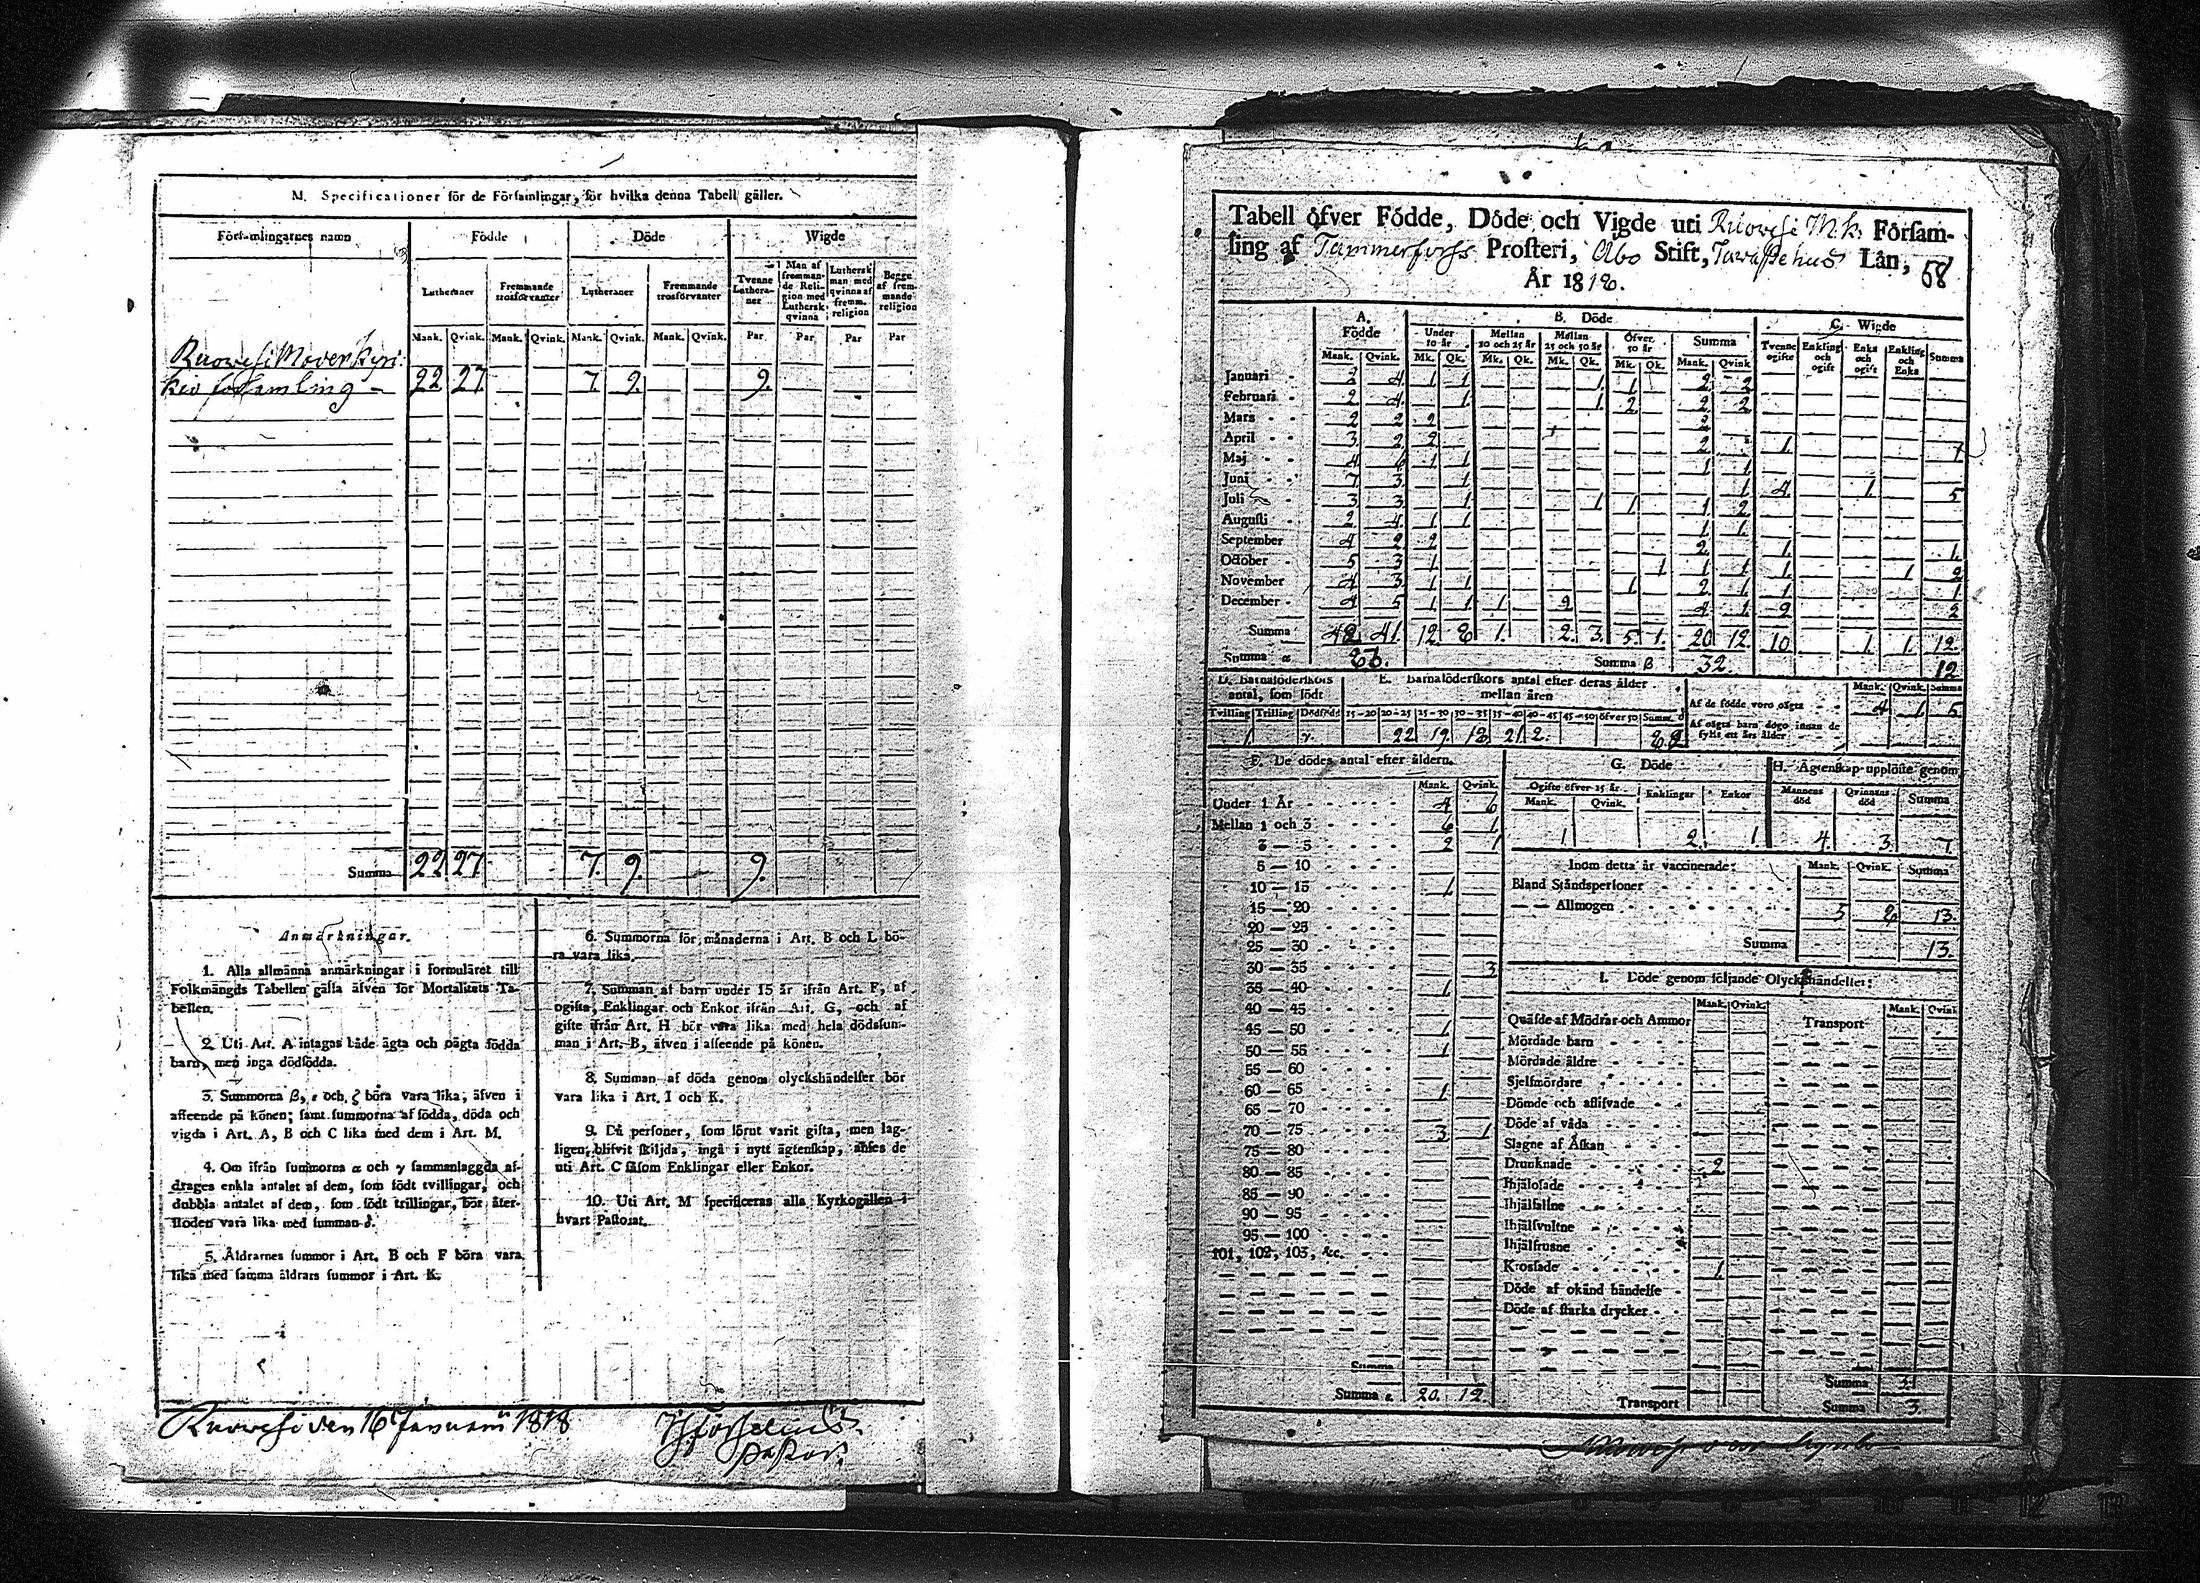 M. Specificationer för de Församlingar, för hvilka denna Tabell gäller.
Församlingarnes namn Födde Döde Wigde
Lutheraner Fremmande trosförvanter Lutheraner Fremmande trosförvanter Tvenne Lutheraner Man af fremmande Religion med Luthersk qvinna Luthersk man med qvinna af fremm. religion Begge af fremmande religion
Mank. Qvink. Mank. Qvink. Mank. Qvink. Mank. Qvink. Par Par Par Par
22 27. 7. 9. 9.
Summa 22. 27 7. 9. 9.
Anmärkningar.
1. Alla allmänna anmärkningar i formuläret till
Folkmängds Tabellen gälla äfven för Mortalitets Ta-
bellen.
2. Uti Art. A intagas både ägta och oägta födda
barn, men inga dödfödda.
3. Summorna β, ε och ζ böra vara lika, äfven i
afseende på könen; samt summorna af födda, döda och
vigda i Art. A, B och C lika med dem i Art. M.
4. Om ifrån summorna α och γ sammanlagda af-
drages enkla antalet af dem, som födt tvillingar, och
dubbla antalet af dem, som födt trillingar, bör åter-
stoden vara lika med summan δ.
5. Åldrarnes summor i Art. B och F böra vara
lika med samma åldrars summor i Art. K.
6. Summorna för månaderna i Art. B och L bö-
ra vara lika.
7. Summan af barn under 15 år ifrån Art. F, af
ogifta, Enklingar och Enkor ifrån Art. G, och af
gifte ifrån Art. H bör vara lika med hela dödssum-
man i Art. B, äfven i afseende på könen.
8. Summan af döda genom olyckshändelser bör
vara lika i Art. I och K.
9. Då personer, som förut varit gifta, men lag-
ligen blifvit skiljda, ingå i nytt ägtenskap, anses de
uti Art. C såsom Enklingar eller Enkor.
10. Uti Art. M specificeras alla Kyrkogällen i
hvart Pastorat.
Ruowesi den 16 Januarii 1818
Pastor.
Tabell öfver Födde, Döde och Vigde uti Ruowesi M.k. Försam-
ling af Tammerforss Prosteri, Åbo Stift, Tawastehus Län,
År 1818. 58
A. Födde B. Döde C. Wigde
Under 10 år Mellan 10 och 25 år Mellan 25 och 50 år Öfver 50 år Summa Tvenne ogifte Enkling och ogift Enka och ogift Enkling och Enka Summa
Mank. Qvink. Mk. Qk. Mk. Qk. Mk. Qk. Mk. Qk. Mank. Qvink
Januari 2 4 1 1 1 1 2 2
Februari 2 4 1 1 2 2 2
Mars 2 2 2 2
April 3 2 2 2 1 1
Maj 4 6 1 1 1 1
Juni 7 3 1 1 4 1 5
Juli 3 3 1 1 1 1 2
Augusti 2 4 1 1 1 1
September 4 2 2 2 1 1
October 5 3 1 1 1 1 1 1 2
November 4 3 1 1 1 2 1 1 1
December 4 5 1 1 1 2 4 1 2 2
Summa 41. 12 8 1. 2. 3. 5. 1. 20 12. 10 1. 1. 12.
Summa α Summa β 32. 12
D. Barnaföderskors antal, som födt E. Barnaföderskors antal efter deras ålder mellan åren
Tvilling Trilling Dödfödde 15–20 20–25 25–30 30–35 35–40 40–45 45–50 öfver 50 Summa δ
1. 22 19. 18. 21 2.
Mank. Qvink. Summa
Af de födde voro oägta 4 1 5
Af oägta barn dogo innan de fyllt ett års ålder
F. De dödes antal efter åldern.
Mank. Qvink.
Under 1 År 4 6
Mellan 1 och 3 6 1
3 — 5 2 1
5 — 10
10 — 15 1
15 — 20
20 — 25
25 — 30
30 — 35 3
35 — 40 1
40 — 45
45 — 50 1
50 — 55 1
55 — 60
60 — 65 1
65 — 70
70 — 75 3 1
75 — 80
80 — 85
85 — 90
90 — 95
95 — 100
101, 102, 103, &c.
Summa
Summa ε 20. 12
G. Döde
Ogifte öfver 15 år Enklingar Enkor
Mank. Qvink.
1 2. 1.
H. Ägtenskap upplöste genom
Mannens död Qvinnans död Summa
4. 3. 7.
Inom detta år vaccinerade: Mank. Qvink. Summa
Bland Ståndspersoner
— — Allmogen 5 8 13.
Summa 13.
I. Döde genom följande Olyckshändelser:
Mank. Qvink. Mank. Qvink
Quäfde af Mödrar och Ammor Transport
Mördade barn
Mördade äldre
Sjelfmördare
Dömde och aflifvade
Döde af våda
Slagne af Åskan
Drunknade 2
Ihjälosade
Ihjälfallne
Ihjälsvultne
Ihjälfrusne
Krossade 1.
Döde af okänd händelse
Döde af starka drycker
Summa 3.
Transport Summa 3.